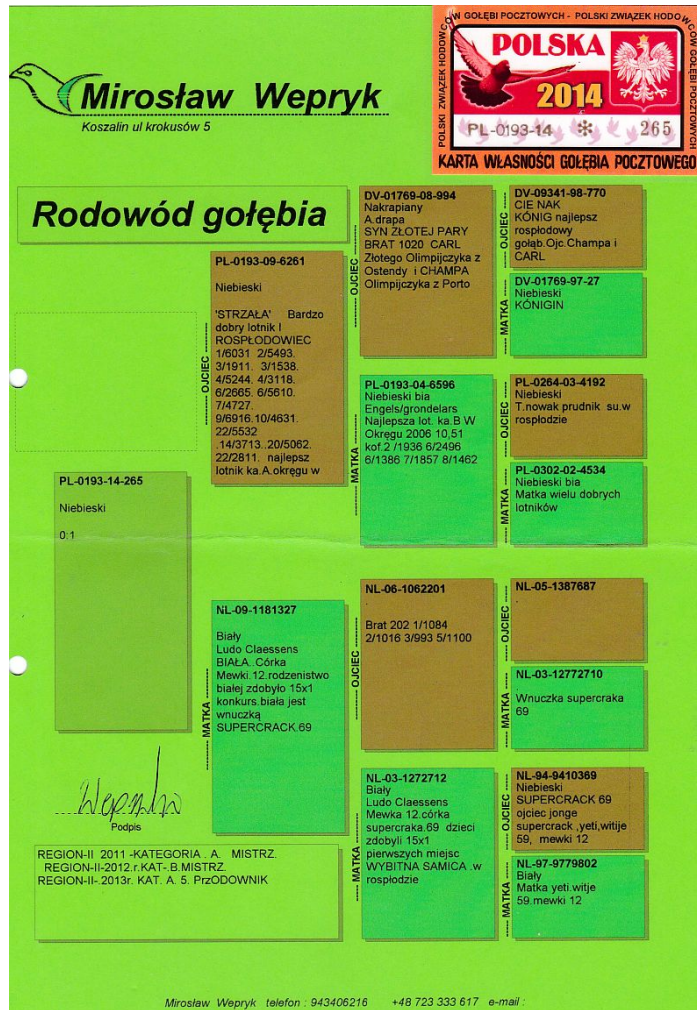 POLSKI ZWIĄZEK HODOWCÓW GOŁĘBI POCZTOWYCH - POLSKI ZWIĄZEK HODOWCÓW GOŁĘBI POCZTOWYCH
POLSKA
2014
PL-0193-14 * 265
KARTA WŁASNOŚCI GOŁĘBIA POCZTOWEGO
Mirosław Wepryk
Koszalin ul krokusów 5
Rodowód gołębia
PL-0193-14-265
Niebieski
0:1
OJCIEC
PL-0193-09-6261
Niebieski
'STRZAŁA' Bardzo
dobry lotnik I
ROSPŁODOWIEC
1/6031 2/5493.
3/1911. 3/1538.
4/5244. 4/3118.
6/2665. 6/5610.
7/4727.
9/6916.10/4631.
22/5532
.14/3713..20/5062.
22/2811. najlepsz
lotnik ka.A.okręgu w
MATKA
NL-09-1181327
Biały
Ludo Claessens
BIAŁA..Córka
Mewki.12.rodzenistwo
białej zdobyło 15x1
konkurs.biała jest
wnuczką
SUPERCRACK.69
OJCIEC
DV-01769-08-994
Nakrapiany
A.drapa
SYN ZŁOTEJ PARY
BRAT 1020 CARL
Złotego Olimpijczyka z
Ostendy i CHAMPA
Olimpijczyka z Porto
MATKA
PL-0193-04-6596
Niebieski bia
Engels/grondelars
Najlepsza lot. ka.B W
Okręgu 2006 10,51
kof.2 /1936 6/2496
6/1386 7/1857 8/1462
OJCIEC
NL-06-1062201
Brat 202 1/1084
2/1016 3/993 5/1100
MATKA
NL-03-1272712
Biały
Ludo Claessens
Mewka 12.córka
supercraka.69 dzieci
zdobyli 15x1
pierwszych miejsc
WYBITNA SAMICA .w
rospłodzie
OJCIEC
DV-09341-98-770
CIE NAK
KÓNIG najlepsz
rospłodowy
gołąb.Ojc.Champa i
CARL
MATKA
DV-01769-97-27
Niebieski
KÓNIGIN
OJCIEC
PL-0264-03-4192
Niebieski
T.nowak prudnik su.w
rospłodzie
MATKA
PL-0302-02-4534
Niebieski bia
Matka wielu dobrych
lotników
OJCIEC
NL-05-1387687
MATKA
NL-03-12772710
Wnuczka supercraka
69
OJCIEC
NL-94-9410369
Niebieski
SUPERCRACK 69
ojciec jonge
supercrack ,yeti,witije
59, mewki 12
MATKA
NL-97-9779802
Biały
Matka yeti.witje
59.mewki 12
Podpis
REGION-II 2011 -KATEGORIA . A. MISTRZ.
REGION-II-2012.r.KAT-.B.MISTRZ.
REGION-II-.2013r. KAT. A. 5. PrzODOWNIK
Mirosław Wepryk telefon : 943406216 +48 723 333 617 e-mail :